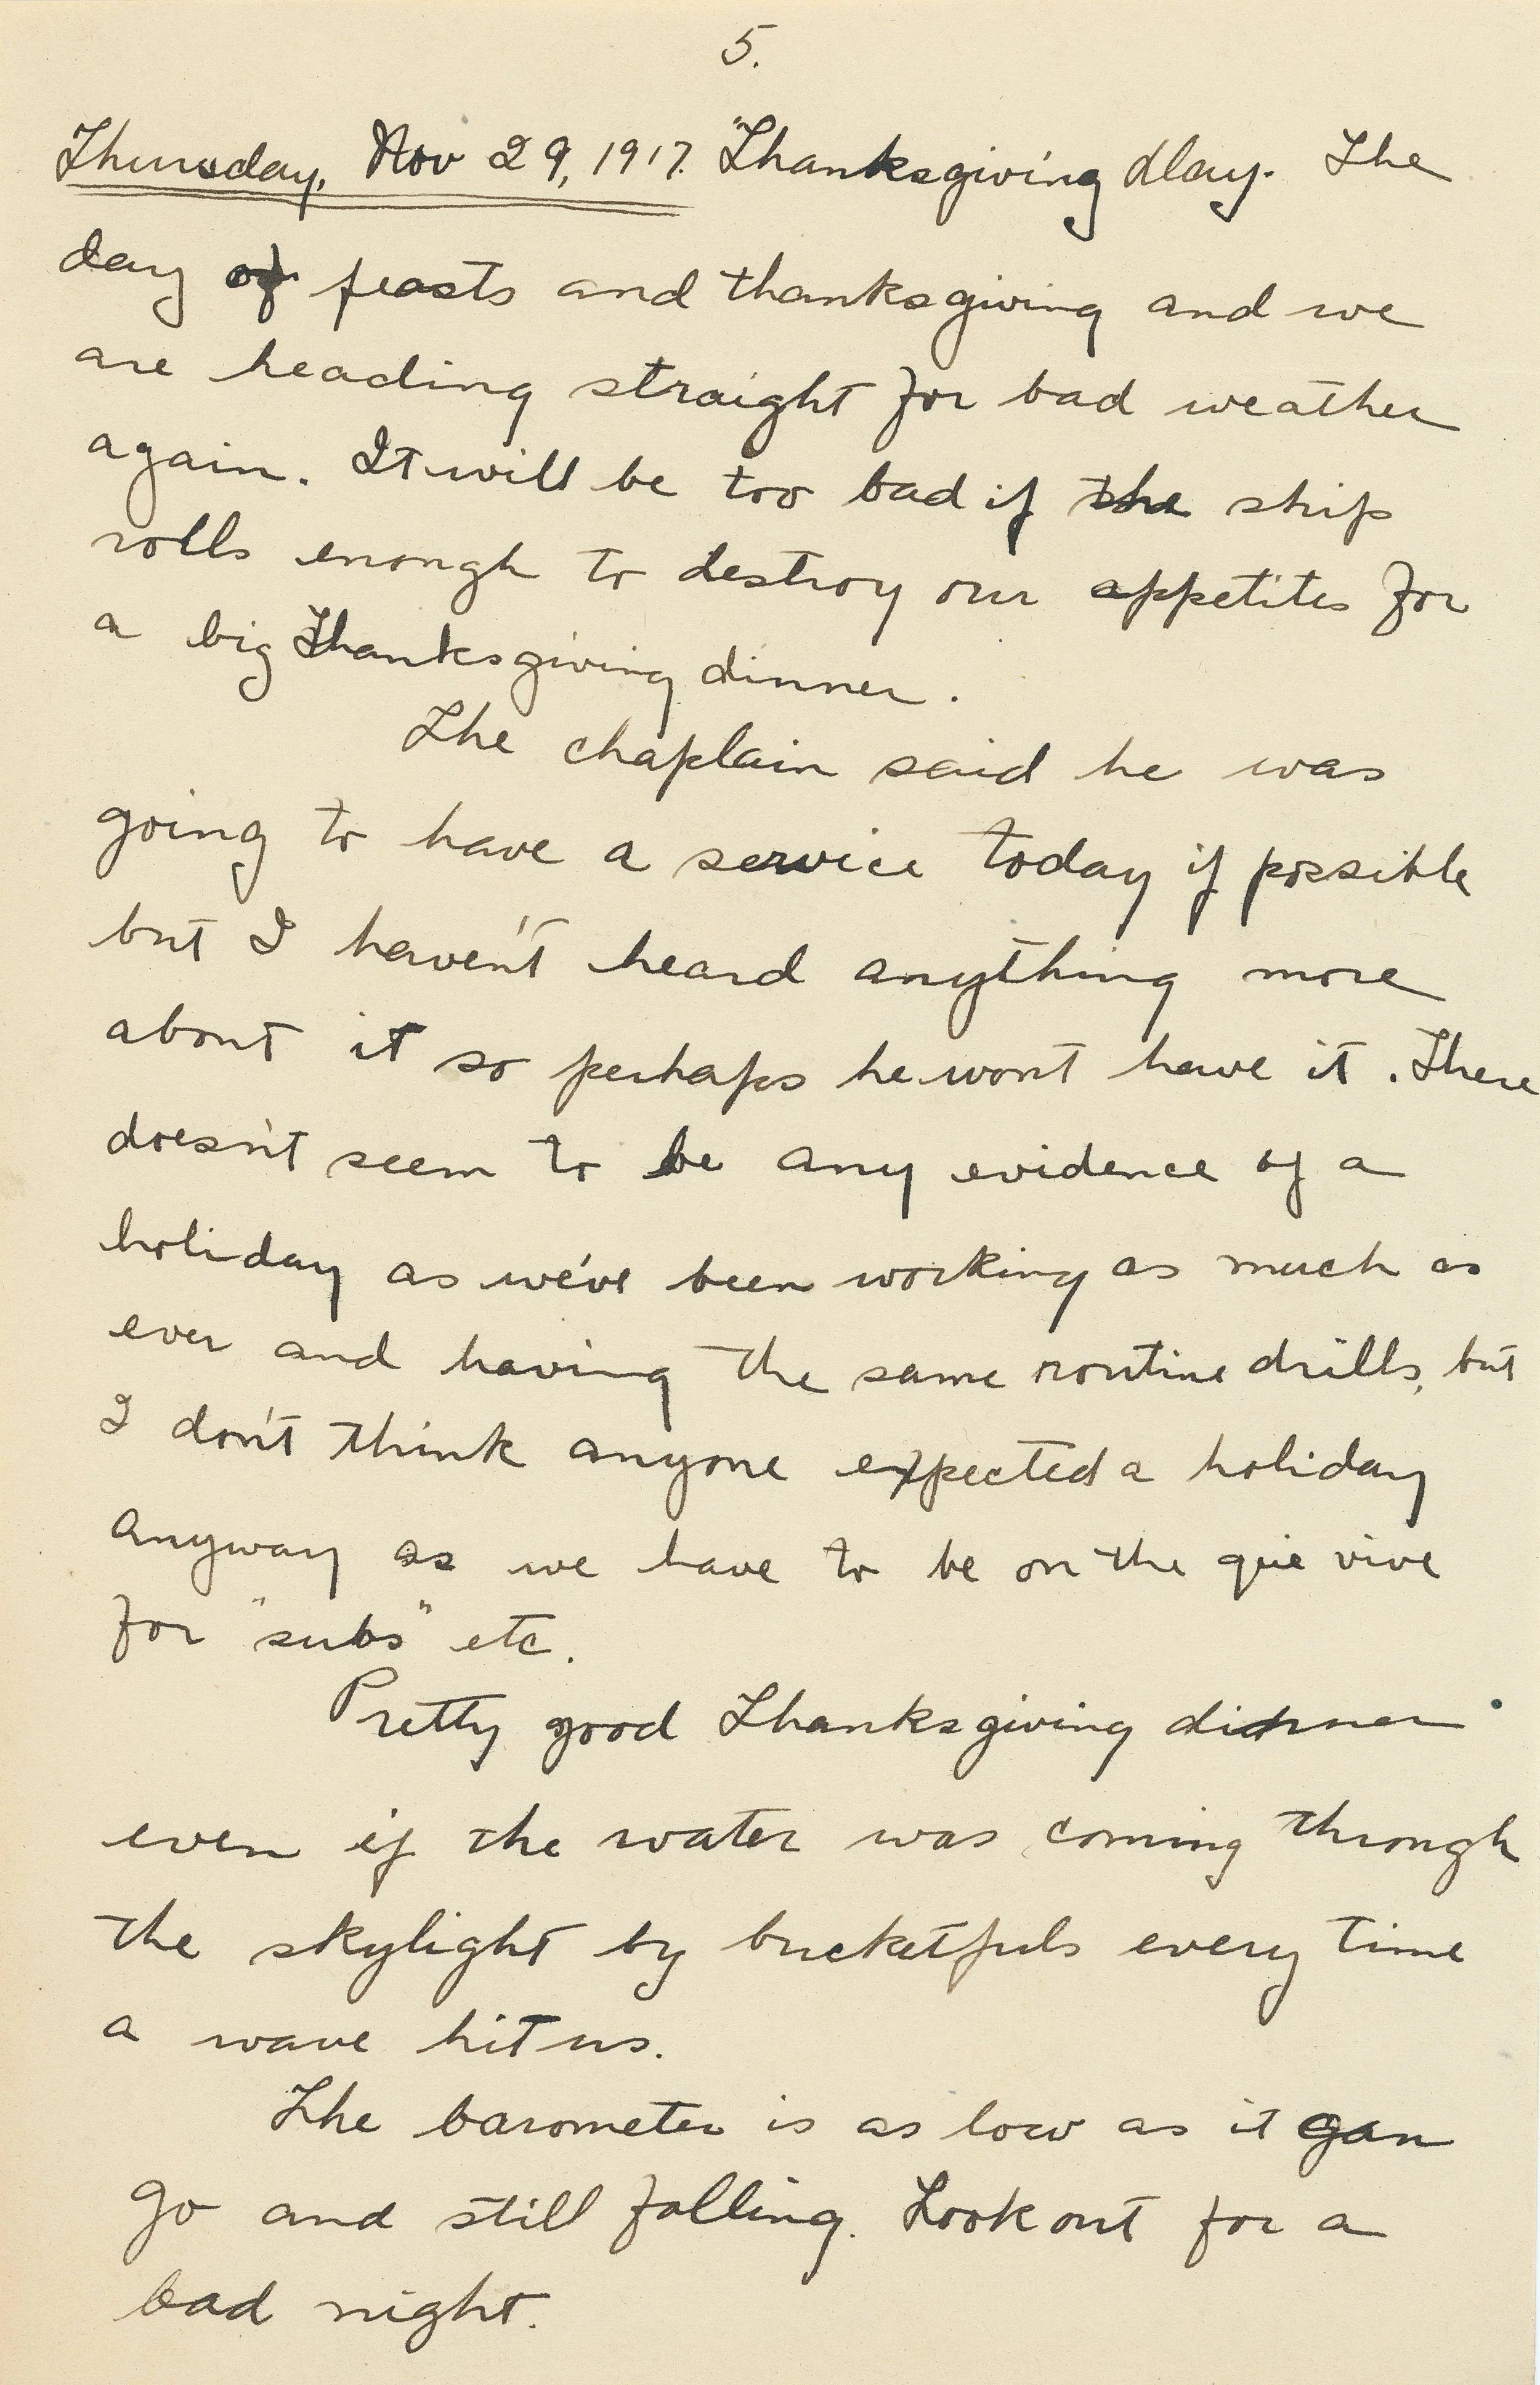 5.
Thursday, Nov 29, 1917. Thanksgiving Day. The
day of feasts and thanksgiving and we
are heading straight for bad weather
again. It will be too bad if the ship
rolls enough to destroy our appetites for
a big Thanksgiving dinner.
The chaplain said he was
going to have a service today if possible
but I haven't heard anything more
about it so perhaps he wont have it. There
doesn't seem to be any evidence of a
holiday as we've been working as much as
ever and having the same routine drills, but
I don't think anyone expected a holiday
anyway as we have to be on the quie vive
for "subs" etc.
Pretty good Thanksgiving dinner
even if the water was coming through
the skylight by bucketfuls every time
a wave hit us.
The barometer is as low as it can
go and still falling. Look out for a
bad night.